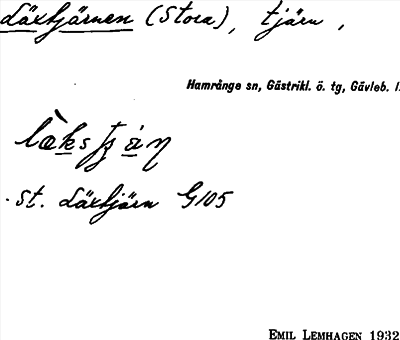 Läxtjärnen (Stora), tjärn,
Hamrånge sn, Gästrikl. ö. tg, Gävleb. l.
st. Läxtjärn G105
EMIL LEMHAGEN 1932